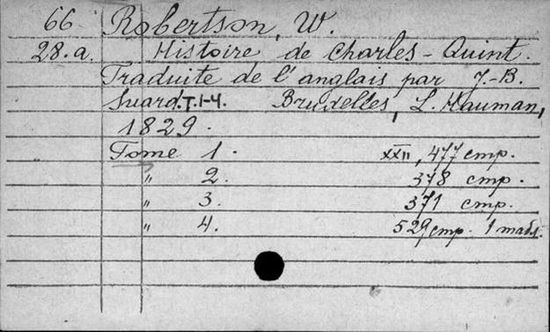 66 Robertson, W.
28.a. Histoire de Charles-Quint.
Traduite de l'anglais par J.-B.
Suard. T.1-4. Bruxelles, L. Hauman,
1829.
Tome 1. XXII, 477 cmp.
" 2. 378 cmp.
" 3. 371 cmp.
" 4. 529 cmp. 1